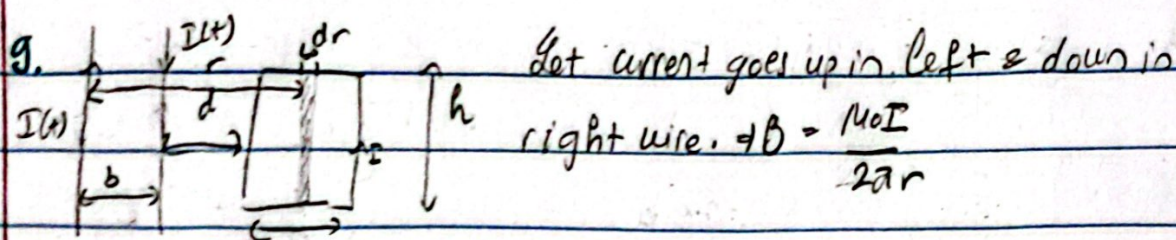 9.
I(t)
r
dr
d
I(t)
b
h
I
Let current goes up in left & down in
right wire. dB = μ₀I / 2πr